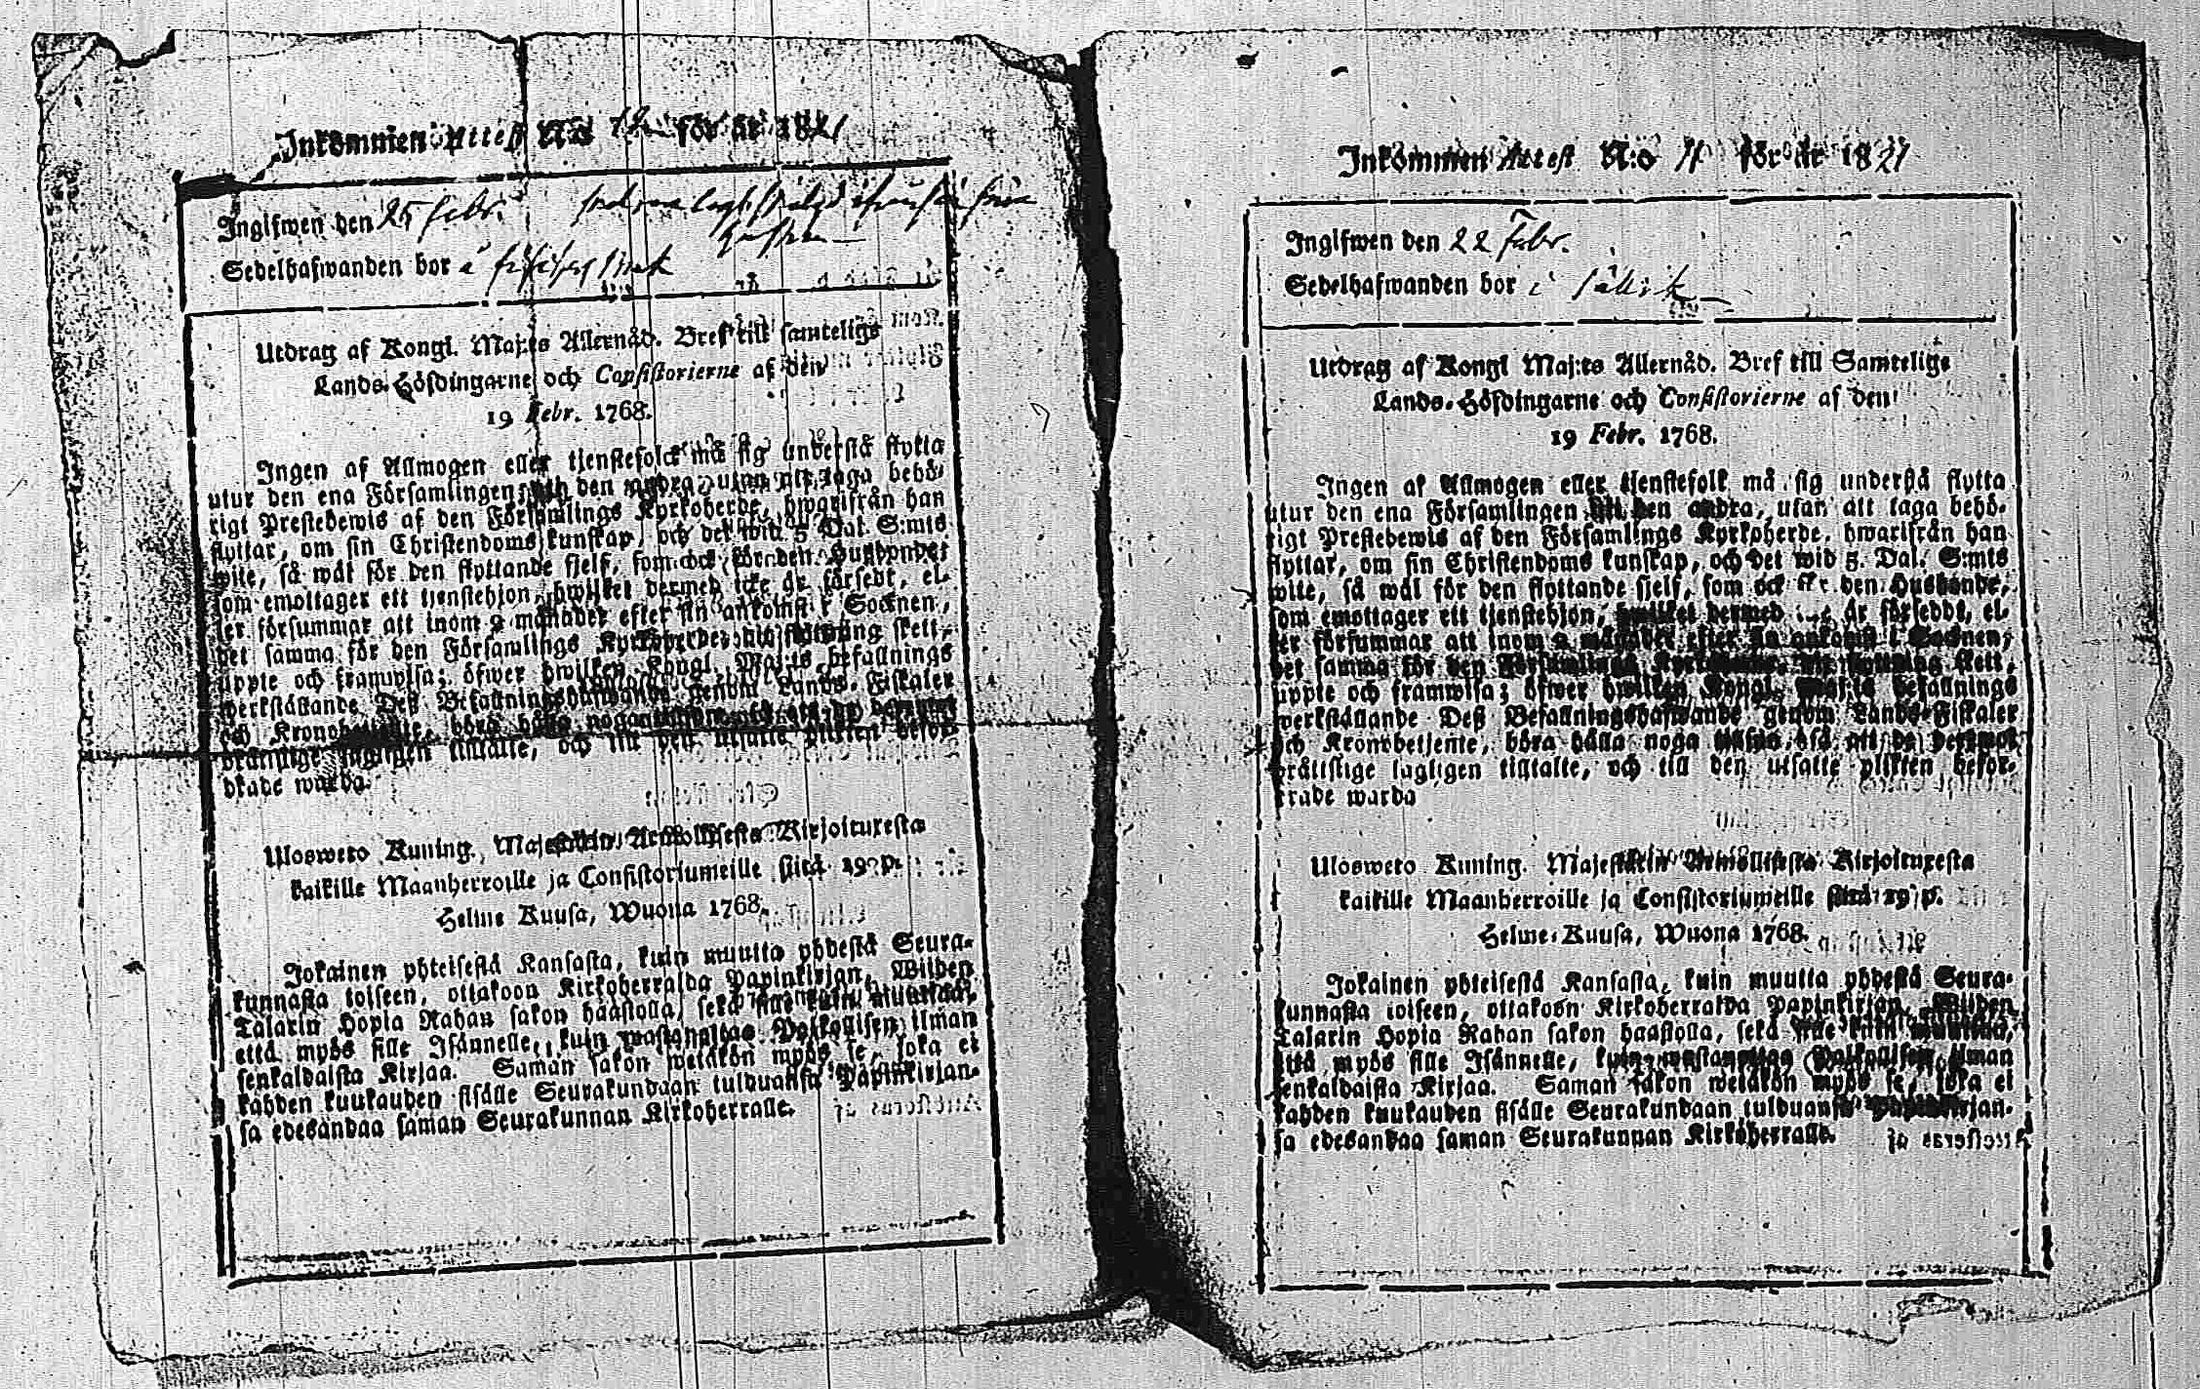 Inkommen Attest N:o för år 1821
Ingifwen den 25 Febr.
Sedelhafwanden bor i
Utdrag af Kongl. Maj:ts Allernåd. Bref till samtelige
Lands-Höfdingarne och Consistorierne af den
19 Febr. 1768.
Ingen af Allmogen eller tjenstefolck må sig understå flytta
utur den ena Församlingen till den andra, utan att taga behö-
rigt Prestebewis af den Församlings Kyrkoherde, hwarifrån han
flyttar, om sin Christendoms kunskap, och det wid 5 Dal. S:mts
wite, så wäl för den flyttande sjelf, som ock för den Husbonde,
som emottager ett tjenstehjon, hwilket dermed icke är försedt, el-
ler försummar att inom 2 månader efter sin ankomst i Socknen,
det samma för den Församlings Kyrkoherde, dit flyttning skett,
uppte och framwisa; öfwer hwilken Kongl. Maj:ts befallnings
werkställande Deß Befallningshafwande genom Lands-Fiskaler
och Kronobetjente, böra hålla noga
bråttslige lagligen tilltalte, och till den utsatte plikten befor-
drade warda.
Ulosweto Kuning. Majestetin Armollisesta Kirjoituxesta
kaikille Maanherroille ja Consistoriumeille siitä 19 p.
Helme Kuusa, Wuona 1768.
Jokainen yhteisestä Kansasta, kuin muutta yhdestä Seura-
kunnasta toiseen, ottakoon Kirkoherralda Papinkirjan, Wiiden
Talarin Hopia Rahan sakon haastolla, sekä sille kuin muuttaa,
että myös sille Isännelle, kuin wastanottaa Palkollisen ilman
senkaldaista Kirjaa. Saman sakon wetäkön myös se, joka ei
kahden kuukauden sisälle Seurakundaan tulduansa Papinkirjan-
sa edesandaa saman Seurakunnan Kirkoherralle.
Inkommen Attest N:o 71 för år 1821
Ingifwen den 22 Febr.
Sedelhafwanden bor i
Utdrag af Kongl Maj:ts Allernåd. Bref till Samtelige
Lands-Höfdingarne och Consistorierne af den
19 Febr. 1768.
Ingen af Allmogen eller tjenstefolk må sig understå flytta
utur den ena Församlingen till den andra, utan att taga behö-
rigt Prestebewis af den Församlings Kyrkoherde, hwarifrån han
flyttar, om sin Christendoms kunskap, och det wid 5. Dal. S:mts
wite, så wäl för den flyttande sjelf, som ock för den Husbonde,
som emottager ett tjenstehjon, hwilket dermed icke är förseddt, el-
ler försummar att inom 2 månader efter sin ankomst i Socknen,
det samma för den Församlings Kyrkoherde, dit flyttning skett,
uppte och framwisa; öfwer hwilken Kongl. Maj:ts befallnings
werkställande Deß Befallningshafwande genom Lands-Fiskaler
och Kronobetjente, böra hålla noga
bråttslige lagligen tilltalte, och till den utsatte plikten befor-
drade warda
Ulosweto Kuning. Majestetin Armollisesta Kirjoituxesta
kaikille Maanherroille ja Consistoriumeille siitä 19 p.
Helme-Kuusa, Wuona 1768.
Jokainen yhteisestä Kansasta, kuin muutta yhdestä Seura-
kunnasta toiseen, ottakoon Kirkoherralda Papinkirjan, Wiiden
Talarin Hopia Rahan sakon haastolla, sekä sille kuin muuttaa,
että myös sille Isännelle, kuin wastanottaa Palkollisen ilman
senkaldaista Kirjaa. Saman sakon wetäkön myös se, joka ei
kahden kuukauden sisälle Seurakundaan tulduansa Papinkirjan-
sa edesandaa saman Seurakunnan Kirkoherralle.